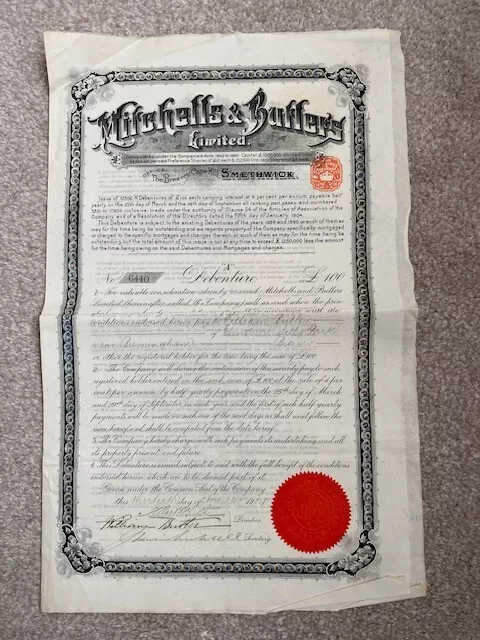 Mitchells & Butlers
Limited.
Incorporated under the Companies Acts 1862 to 1886. Capital £
Preference Shares of £10 each & Ordinary Shares of £10 each
The Brewery SMETHWICK
Issue of 12500 A Debentures of £100 each carrying interest at 4 per cent per annum, payable half
yearly on the 25th day of March and the 29th day of September all ranking pari passu and numbered
are made under the authority of Clause 54 of the Articles of Association of the
Company and of a Resolution of the Directors dated the Fifth day of January 1904.
This Debenture is subject to the existing Debentures of the years 1888 and 1890 or such of them as
may for the time being be outstanding and as regards property of the Company specifically mortgaged
or charged to the specific mortgages and charges thereon, or such of them as may for the time being be
outstanding but the total amount of this issue is not at any time to exceed £1,250,000 less the amount
for the time being owing on the said Debentures and Mortgages and charges.
"A"
No. 6440 Debenture £100
1. For valuable consideration already received Mitchells and Butlers
Limited (hereinafter called the Company) will as and when the prin-
in accordance with the
conditions endorsed hereon pay to William Butler
of
near Birmingham
or other the registered holder for the time being the sum of £100
2. The Company will during the continuance of this security pay to such
registered holder interest on the said sum of £100 at the rate of 4 per
cent per annum by half yearly payments on the 25th day of March
and 29th day of September in each year, and the first of such half yearly
payments will be made on such one of the said days as shall next follow the
same hereof and shall be computed from the date hereof.
3. The Company hereby charges with such payments its undertaking and all
its property present and future.
4. This Debenture is issued subject to and with the full benefit of the conditions
endorsed hereon which are to be deemed part of it.
Given under the Common Seal of the Company
this day of
Directors
William Butler
Secretary